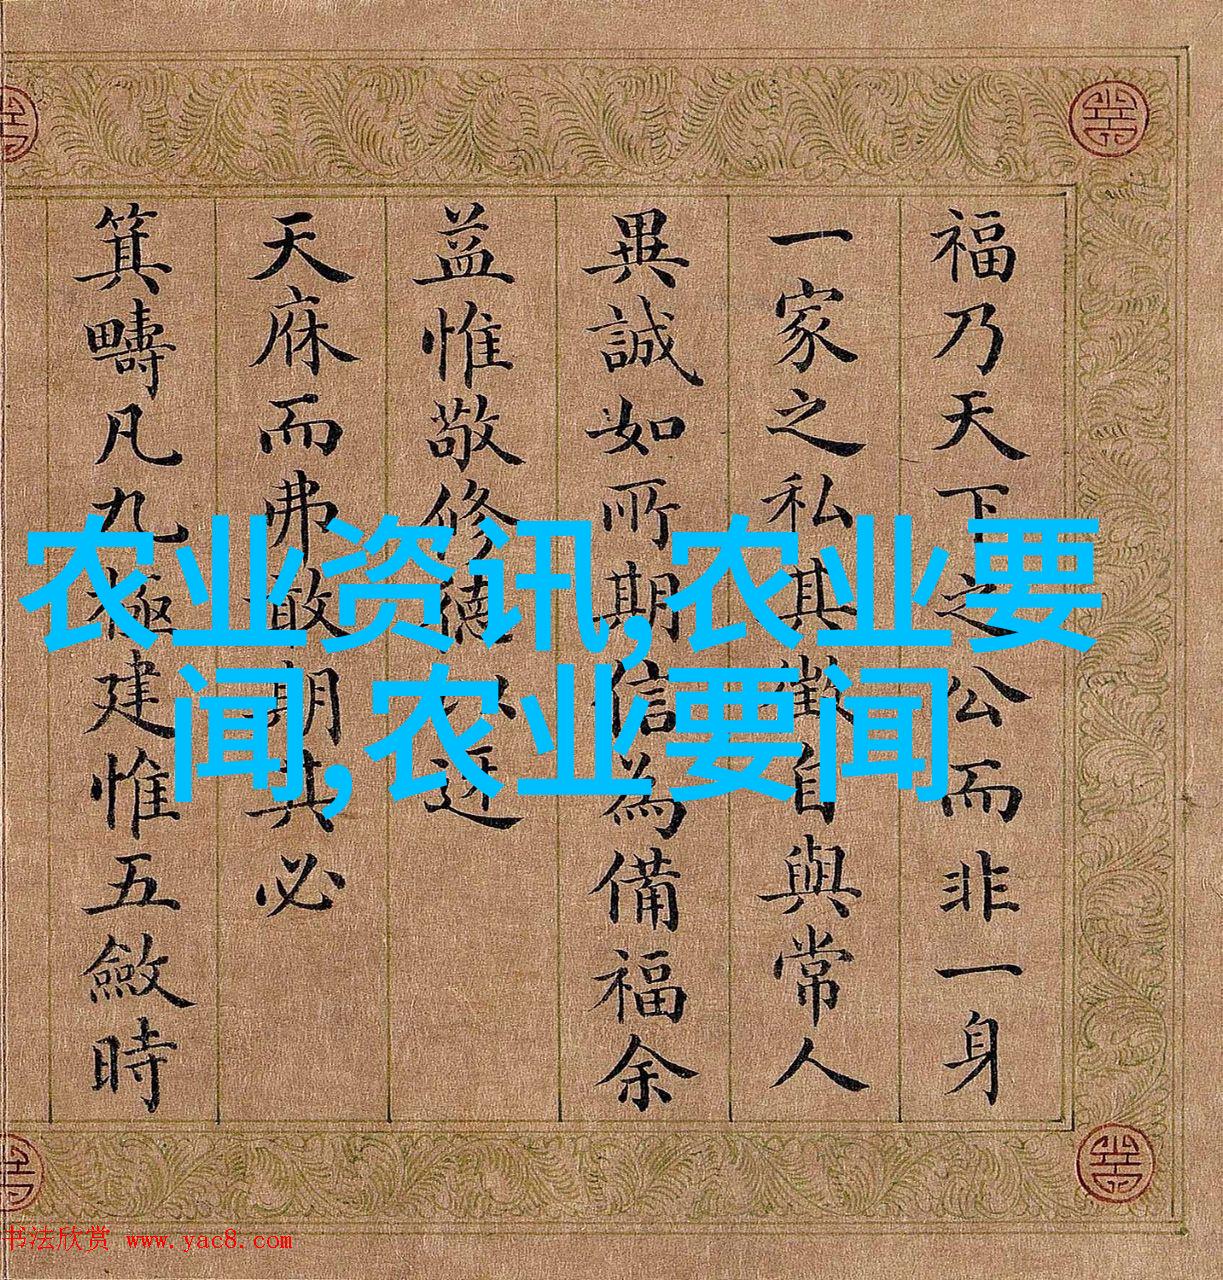 福乃天下之公而非一身
一家之私其徵自與常人
異誠如所期信為備福余
益惟敬修德以迓
天庥而弗敢期其必
箕疇凡九極建惟五斂時
农业资讯,农业要
闻,农业要闻
书法欣赏 www.yac8.com